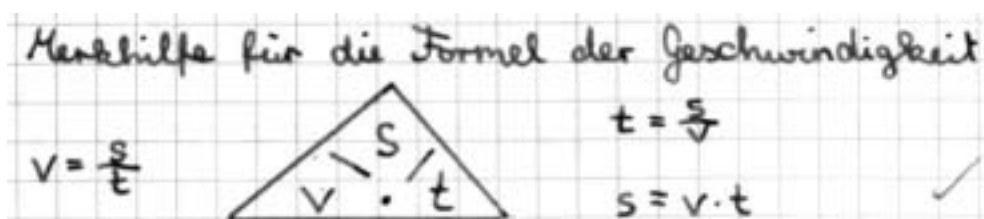 Merkhilfe für die Formel der Geschwindigkeit
v = s/t
S
v · t
t = s/v
s = v · t